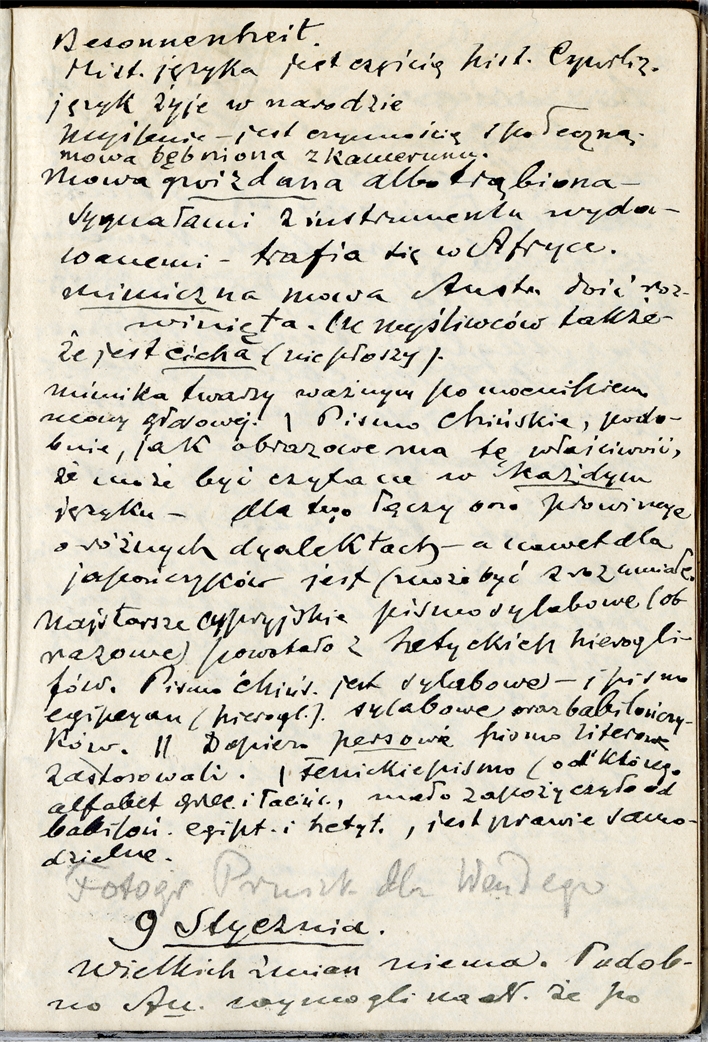 Besonnenheit.
Hist. języka jest częścią hist. Cywiliz.
język żyje w narodzie
myślenie – jest czynnością społeczną.
mowa bębniona z kamerunu.
mowa gwizdana albo trąbiona –
sygnałami z instrumentu wyda-
wanemi – trafia się w Afryce.
mimiczna mowa Austr. dość roz-
winięta. U myśliwców także
że jest cicha (nie płoszy).
mimika twarzy ważnym pomocnikiem
mowy głosowej. | Pismo Chińskie, podo-
bnie, jak obrazowe ma tę właściwość,
że może być czytane w każdym
języku – dla tego łączy ono prowincye
o różnych dyalektach – a nawet dla
japończyków jest (może być zrozumiałe.
Najstarsze cypryjskie pismo sylabowe (ob
razowe) powstało z hetyckich hierogli-
fów. Pismo chińs. jest sylabowe – i pismo
egipcyan (hierogl.). sylabowe oraz babilończy-
ków. || Dopiero persowie pismo literowe
zastosowali. | Fenickie pismo (od którego
alfabet grec. i łaciń., mało zapożyczyło od
babiloń. egipt. i hetyt., jest prawie samo-
dzielne.
Fotogr Pruszk dla
9 Stycznia.
Wielkich zmian niema. Podob-
no An. wymogli na N. że po